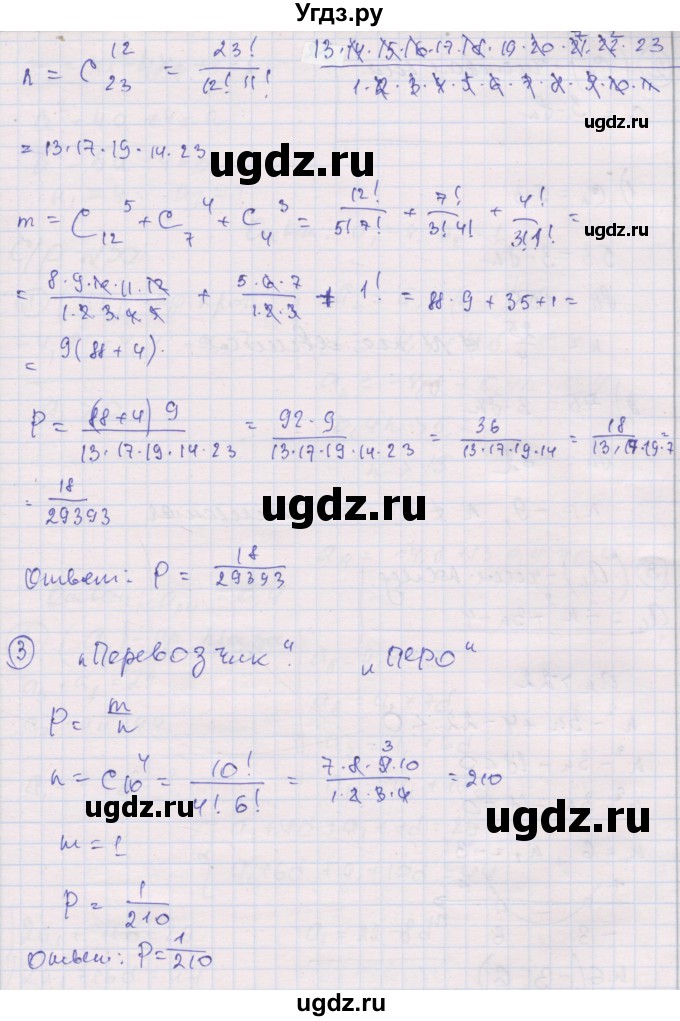 Угдз.ру
n = C₂₃¹² = 23!/(12! 11!) 13·14·15·16·17·18·19·20·21·22·23/(1·2·3·4·5·6·7·8·9·10·11)
ugdz.ru
= 13·17·19·14·23
ugdz.ru
ugdz.ru
m = C₁₂⁵ + C₇⁴ + C₄³ = 12!/(5! 7!) + 7!/(3! 4!) + 4!/(3! 1!) =
= 8·9·10·11·12/(1·2·3·4·5) + 5·6·7/(1·2·3) + 1! = 88·9 + 35 + 1 =
ugdz.ru
ugdz.ru
= 9(88+4).
P = (88+4) 9/(13·17·19·14·23) = 92·9/(13·17·19·14·23) = 36/(13·17·19·14) = 18/(13·17·19·7) =
= 18/29393
ugdz.ru
ugdz.ru
Ответ: P = 18/29393
ugdz.ru
③ „Перевозчик“. „перо“
P = m/n
ugdz.ru
n = C₁₀⁴ = 10!/(4! 6!) = 7·8·9·10/(1·2·3·4) = 210
3
ugdz.ru
ugdz.ru
m = 1
P = 1/210
ugdz.ru
Ответ: P = 1/210
ugdz.ru
ugdz.ru